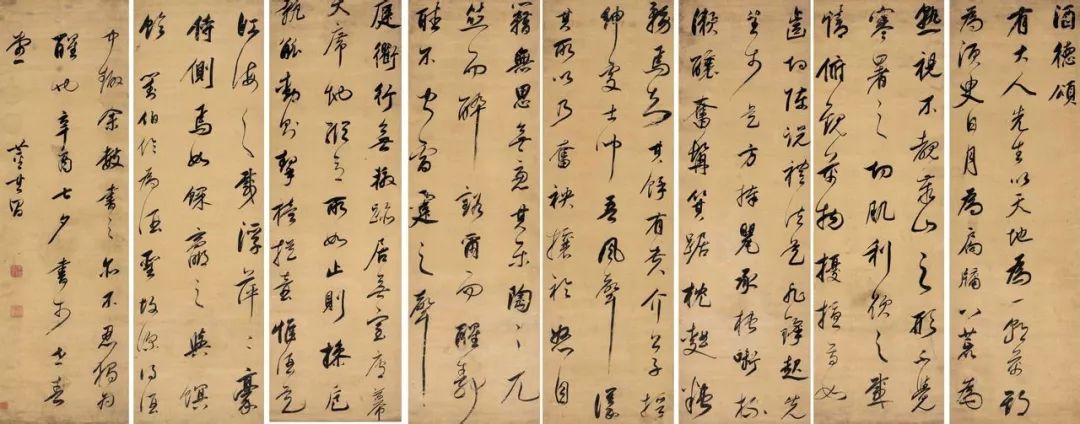 酒德頌
有大人先生以天地為一朝萬期
為須臾日月為扃牖八荒為
熟視不覩泰山之形不覺
寒暑之切肌利欲之感
情俯觀萬物擾擾焉如
齒切陳說禮法是非鋒起先
生於是方捧甖承槽銜杯
漱醪奮髯箕踞枕麴糟
務焉知其餘有貴介公子搢
紳處士聞吾風聲議
其所以乃奮袂攘衿怒目
籍無思無慮其樂陶〻兀
然而醉豁爾而醒靜
聽不聞雷霆之聲
庭衢行無轍跡居無室廬幕
天席地縱意所如止則操卮
執觚動則挈榼提壺惟酒是
江海之載浮萍二豪
侍側焉如蜾蠃之與螟
蛉 劉伯倫為酒故深得酒
中趣余數書之亦不忍獨為
醒也辛酉七夕書於世春
堂 董其昌